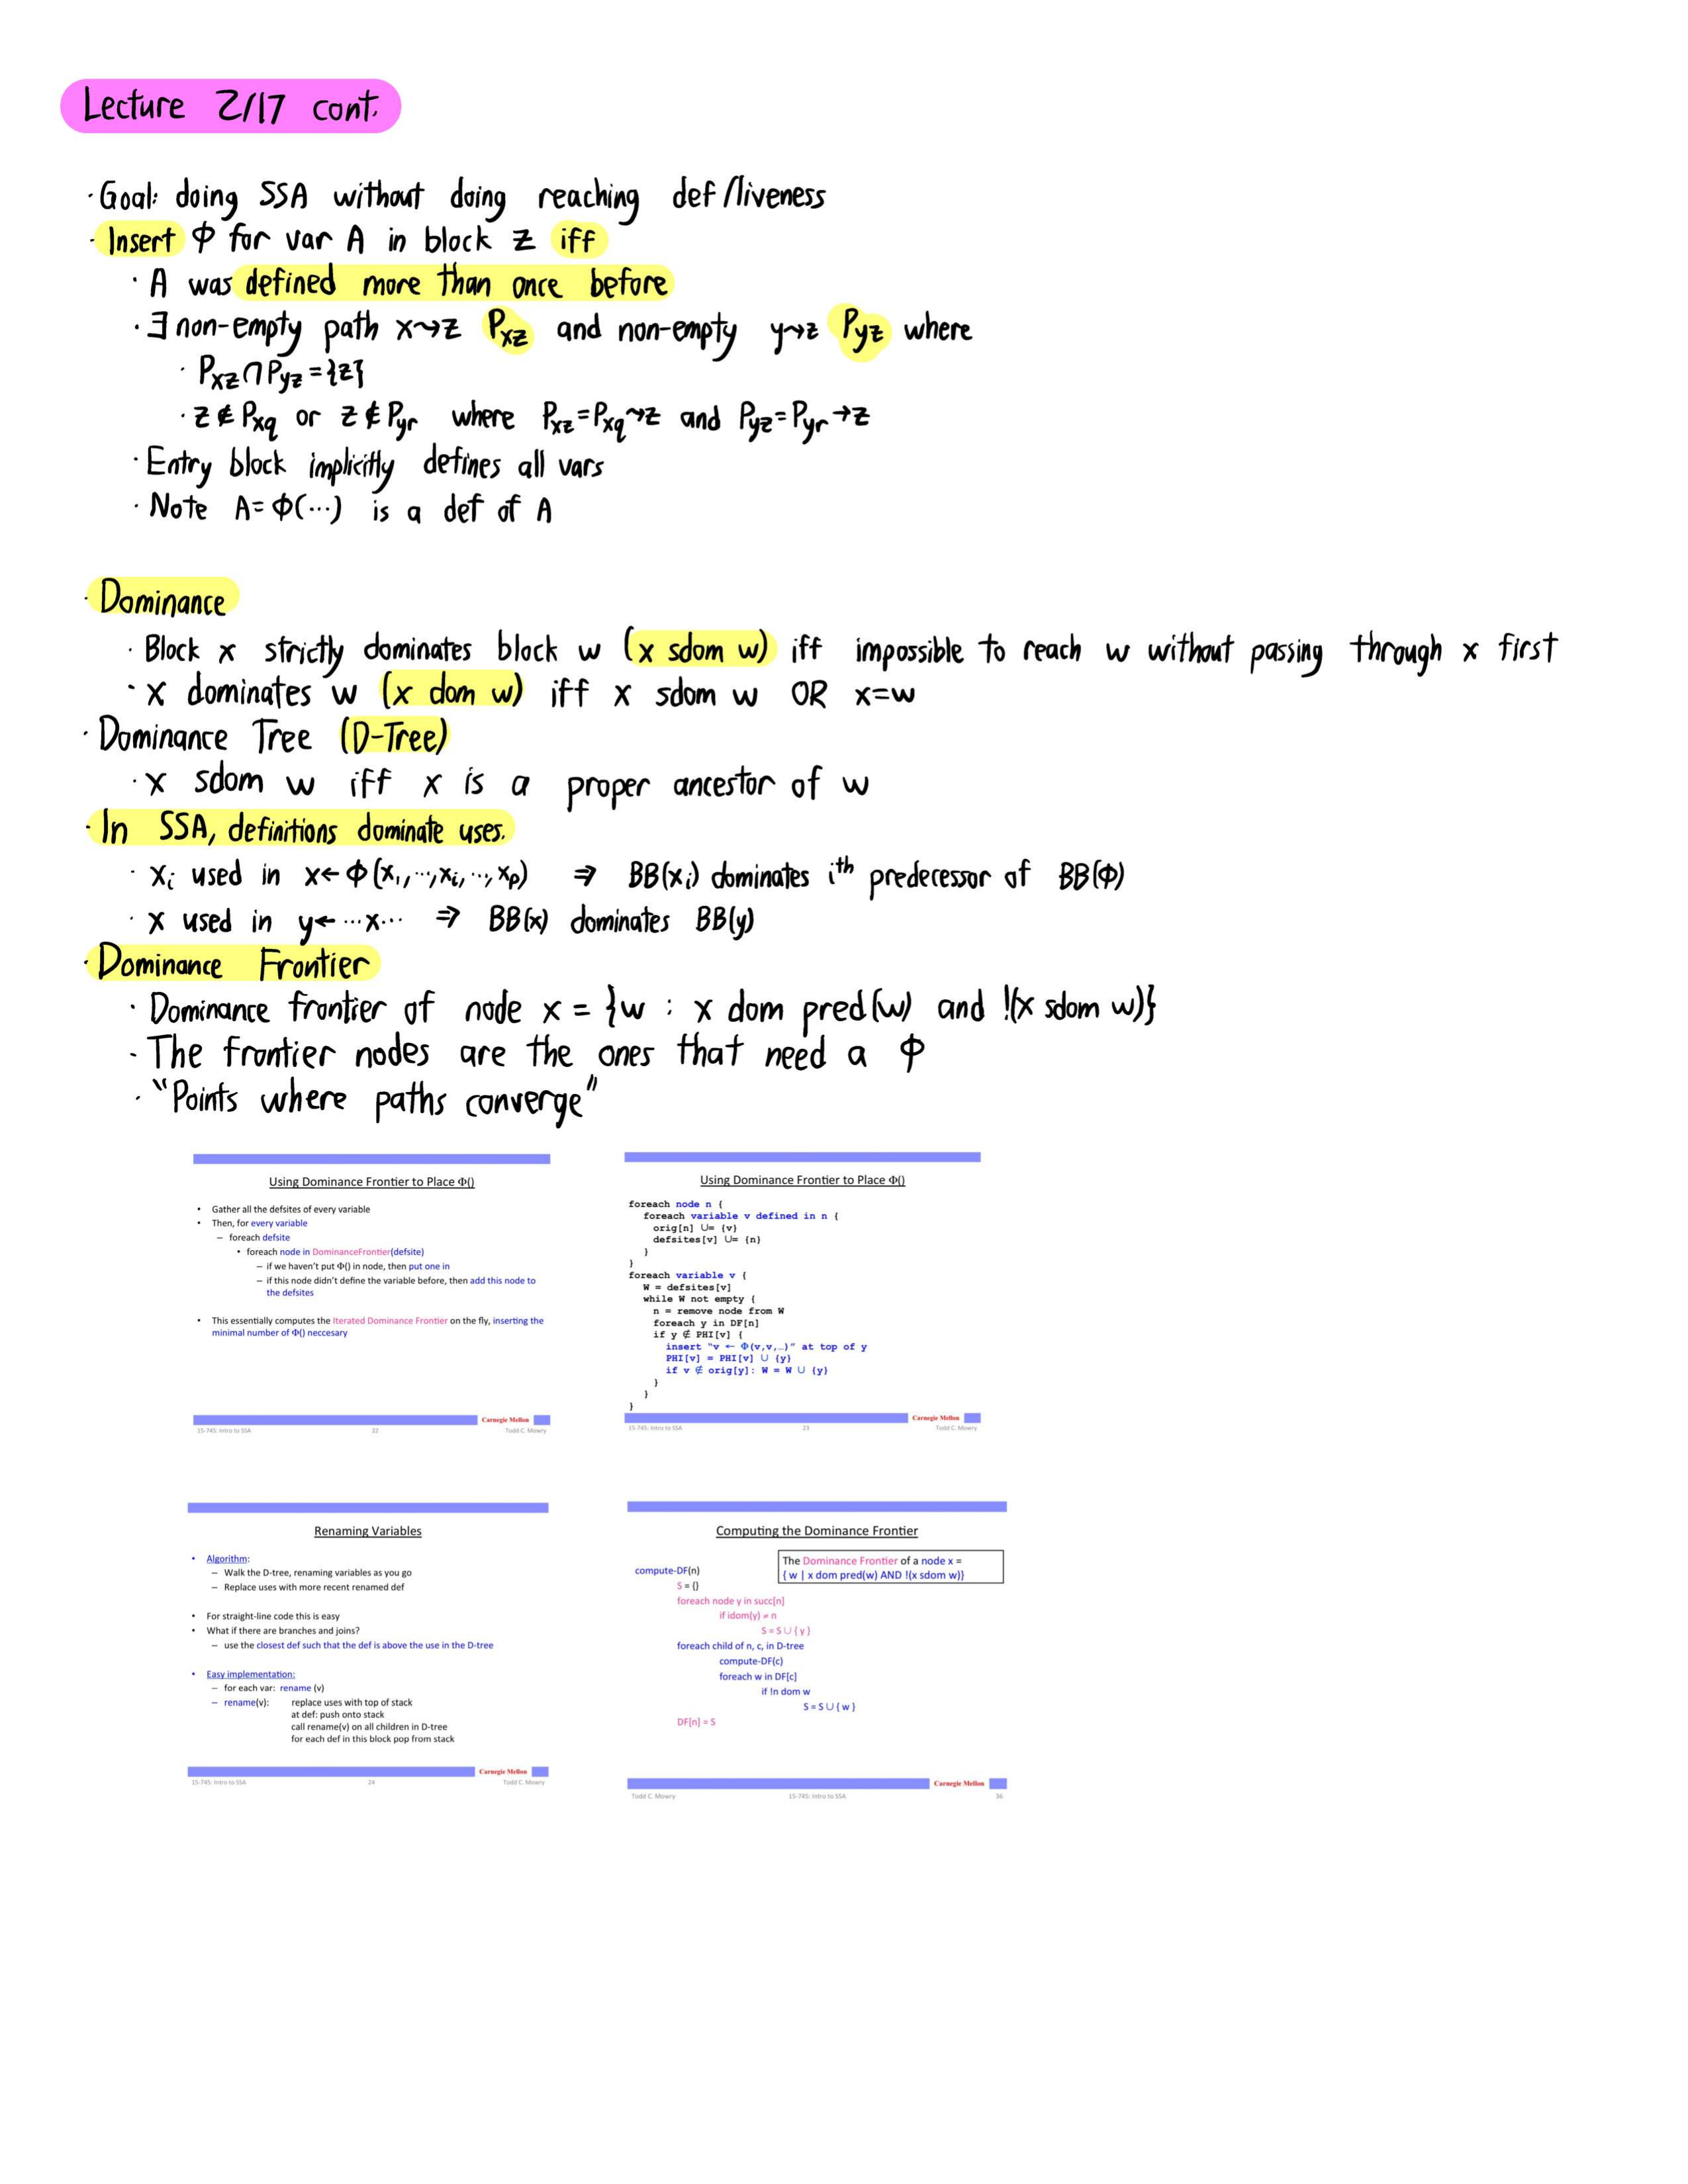 Lecture 2/17 cont.
· Goal: doing SSA without doing reaching def/liveness
· Insert Φ for var A in block z iff
· A was defined more than once before
· ∃ non-empty path x⇝z Pxz and non-empty y⇝z Pyz where
· Pxz ∩ Pyz = {z}
· z ∉ Pxq or z ∉ Pyr where Pxz = Pxq ⇝ z and Pyz = Pyr → z
· Entry block implicitly defines all vars
· Note A = Φ(...) is a def of A
· Dominance
· Block x strictly dominates block w (x sdom w) iff impossible to reach w without passing through x first
· x dominates w (x dom w) iff x sdom w OR x=w
· Dominance Tree (D-Tree)
· x sdom w iff x is a proper ancestor of w
· In SSA, definitions dominate uses.
· xi used in x ← Φ(x1, ..., xi, ..., xp) ⇒ BB(xi) dominates ith predecessor of BB(Φ)
· x used in y ← ...x... ⇒ BB(x) dominates BB(y)
· Dominance Frontier
· Dominance frontier of node x = {w : x dom pred(w) and !(x sdom w)}
· The frontier nodes are the ones that need a Φ
· "Points where paths converge"
Using Dominance Frontier to Place Φ()
• Gather all the defsites of every variable
• Then, for every variable
– foreach defsite
• foreach node in DominanceFrontier(defsite)
– if we haven't put Φ() in node, then put one in
– if this node didn't define the variable before, then add this node to
the defsites
• This essentially computes the Iterated Dominance Frontier on the fly, inserting the
minimal number of Φ() neccesary
Carnegie Mellon
15-745: Intro to SSA 22 Todd C. Mowry
Using Dominance Frontier to Place Φ()
foreach node n {
foreach variable v defined in n {
orig[n] ∪= {v}
defsites[v] ∪= {n}
}
}
foreach variable v {
W = defsites[v]
while W not empty {
n = remove node from W
foreach y in DF[n]
if y ∉ PHI[v] {
insert "v ← Φ(v,v,…)" at top of y
PHI[v] = PHI[v] ∪ {y}
if v ∉ orig[y]: W = W ∪ {y}
}
}
}
Carnegie Mellon
15-745: Intro to SSA 23 Todd C. Mowry
Renaming Variables
• Algorithm:
– Walk the D-tree, renaming variables as you go
– Replace uses with more recent renamed def
• For straight-line code this is easy
• What if there are branches and joins?
– use the closest def such that the def is above the use in the D-tree
• Easy implementation:
– for each var: rename (v)
– rename(v): replace uses with top of stack
at def: push onto stack
call rename(v) on all children in D-tree
for each def in this block pop from stack
Carnegie Mellon
15-745: Intro to SSA 24 Todd C. Mowry
Computing the Dominance Frontier
The Dominance Frontier of a node x =
{ w | x dom pred(w) AND !(x sdom w)}
compute-DF(n)
S = {}
foreach node y in succ[n]
if idom(y) ≠ n
S = S ∪ { y }
foreach child of n, c, in D-tree
compute-DF(c)
foreach w in DF[c]
if !n dom w
S = S ∪ { w }
DF[n] = S
Carnegie Mellon
Todd C. Mowry 15-745: Intro to SSA 36